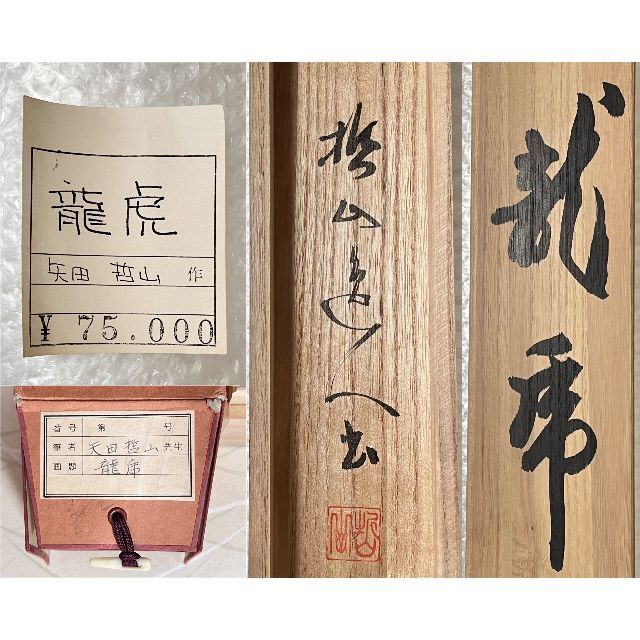 龍虎
矢田 哲山 作
¥ 75.000
番号 第 号
筆者 矢田哲山先生
画題 龍虎
哲山 人書
哲山
龍虎